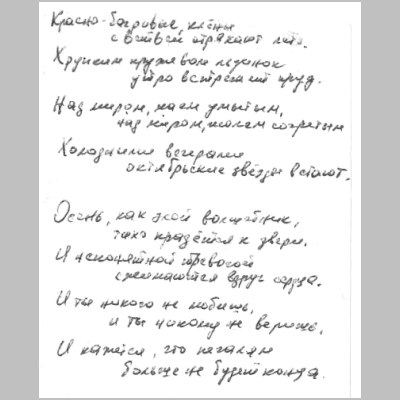 Красно-багровые клёны
с ветвей отряхают лето.
Хрупким кружевом льдинок
утро встречает пруд.
Над миром, умытым,
над миром, согретым
Холодными вечерами
октябрьские звёзды встают.
Осень, как злой волшебник,
тихо крадётся к двери.
И непонятной тревогой
сжимаются вдруг сердца.
И ты никого не любишь,
и ты никому не веришь,
И кажется, что печалям
больше не будет конца.